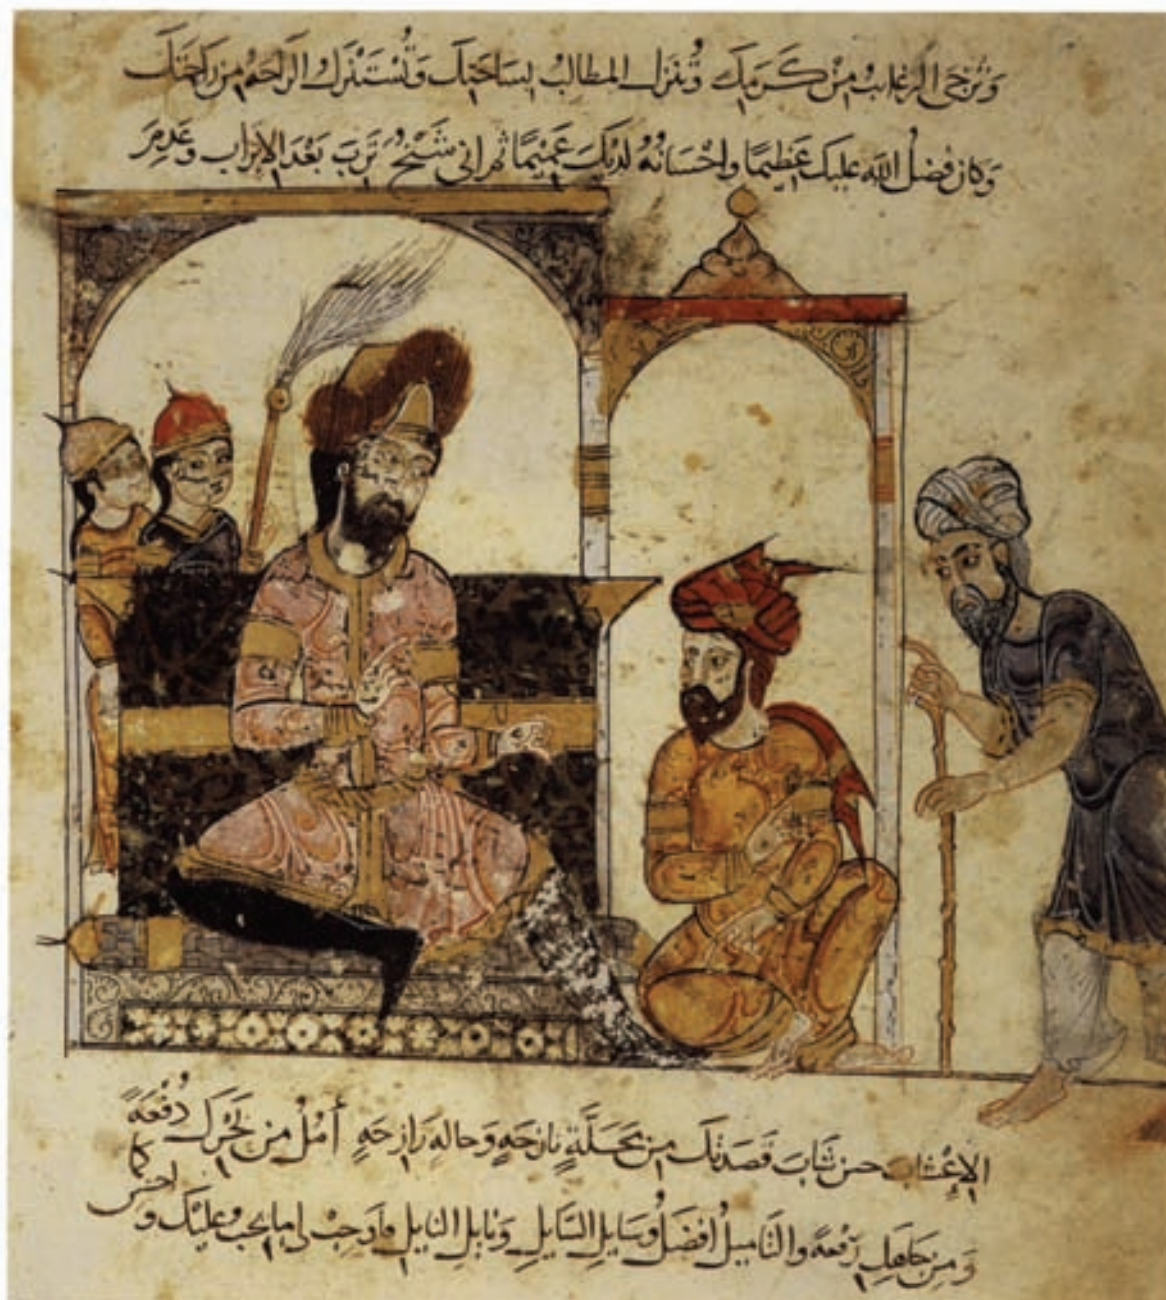 وَتُرْجَى الرغايب مِنْ كَرَمِكَ وَتُنْزَل المطالبُ بِسَاحَتِكَ وَتُسْتَنْزَلُ الرَّاحَةُ مِن رَاحَتِكَ
وَكان فضلُ الله عليك عَظِيمًا واحْسَانُهُ لَدَيْكَ عَمِيمًا ثم اني شَيْخٌ تَرِبَ بَعْدَ الاِتراب وعَدِمَ
الاِعْشَابَ حين شَابَ قَصَدْتُكَ مِن مَحَلَّةٍ نازحَةٍ وَحالةٍ رَازِحَةٍ أمُلُ مِن بَحْرِكَ دُفْعَةً
وَمِن جَاهِكَ رِفْعَةً والتَّاميلُ أفضَلُ وسَايلِ السَّايلِ وَنَايلِ النايلِ فاَوجِبْ لي ما يجبُ عليْكَ واحسن كما